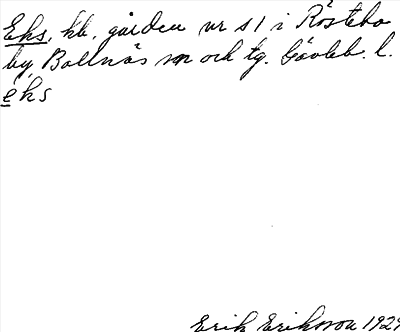 Eks, kb. gården nr 51 i Röstebo
by Bollnäs sn och tg. Gävleb. l.
èks
Erik Eriksson 1929